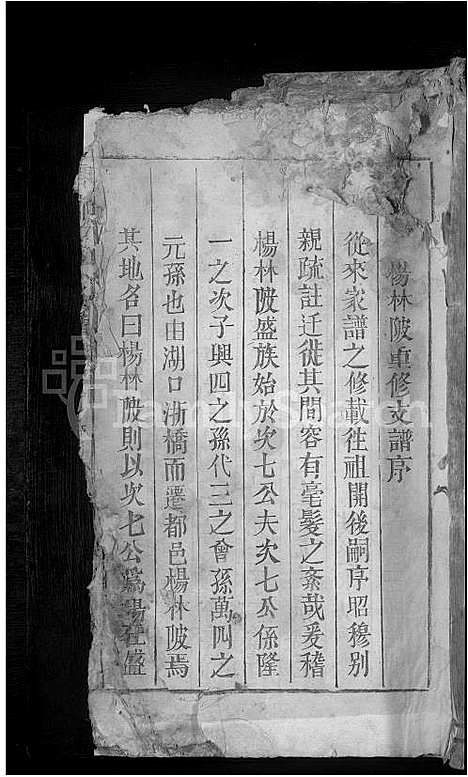 楊林陂重修支譜序
從來家譜之修載徃祖開後嗣序昭穆别
親疏註迁徙其間容有毫髮之紊哉爰稽
楊林陂盛族始於次七公夫次七公係隆
一之次子興四之孫代三之會孫萬四之
元孫也由湖口淅橋而遷都邑楊林陂焉
其地名曰楊林陂則以次七公爲楊林盛
FamilySearch